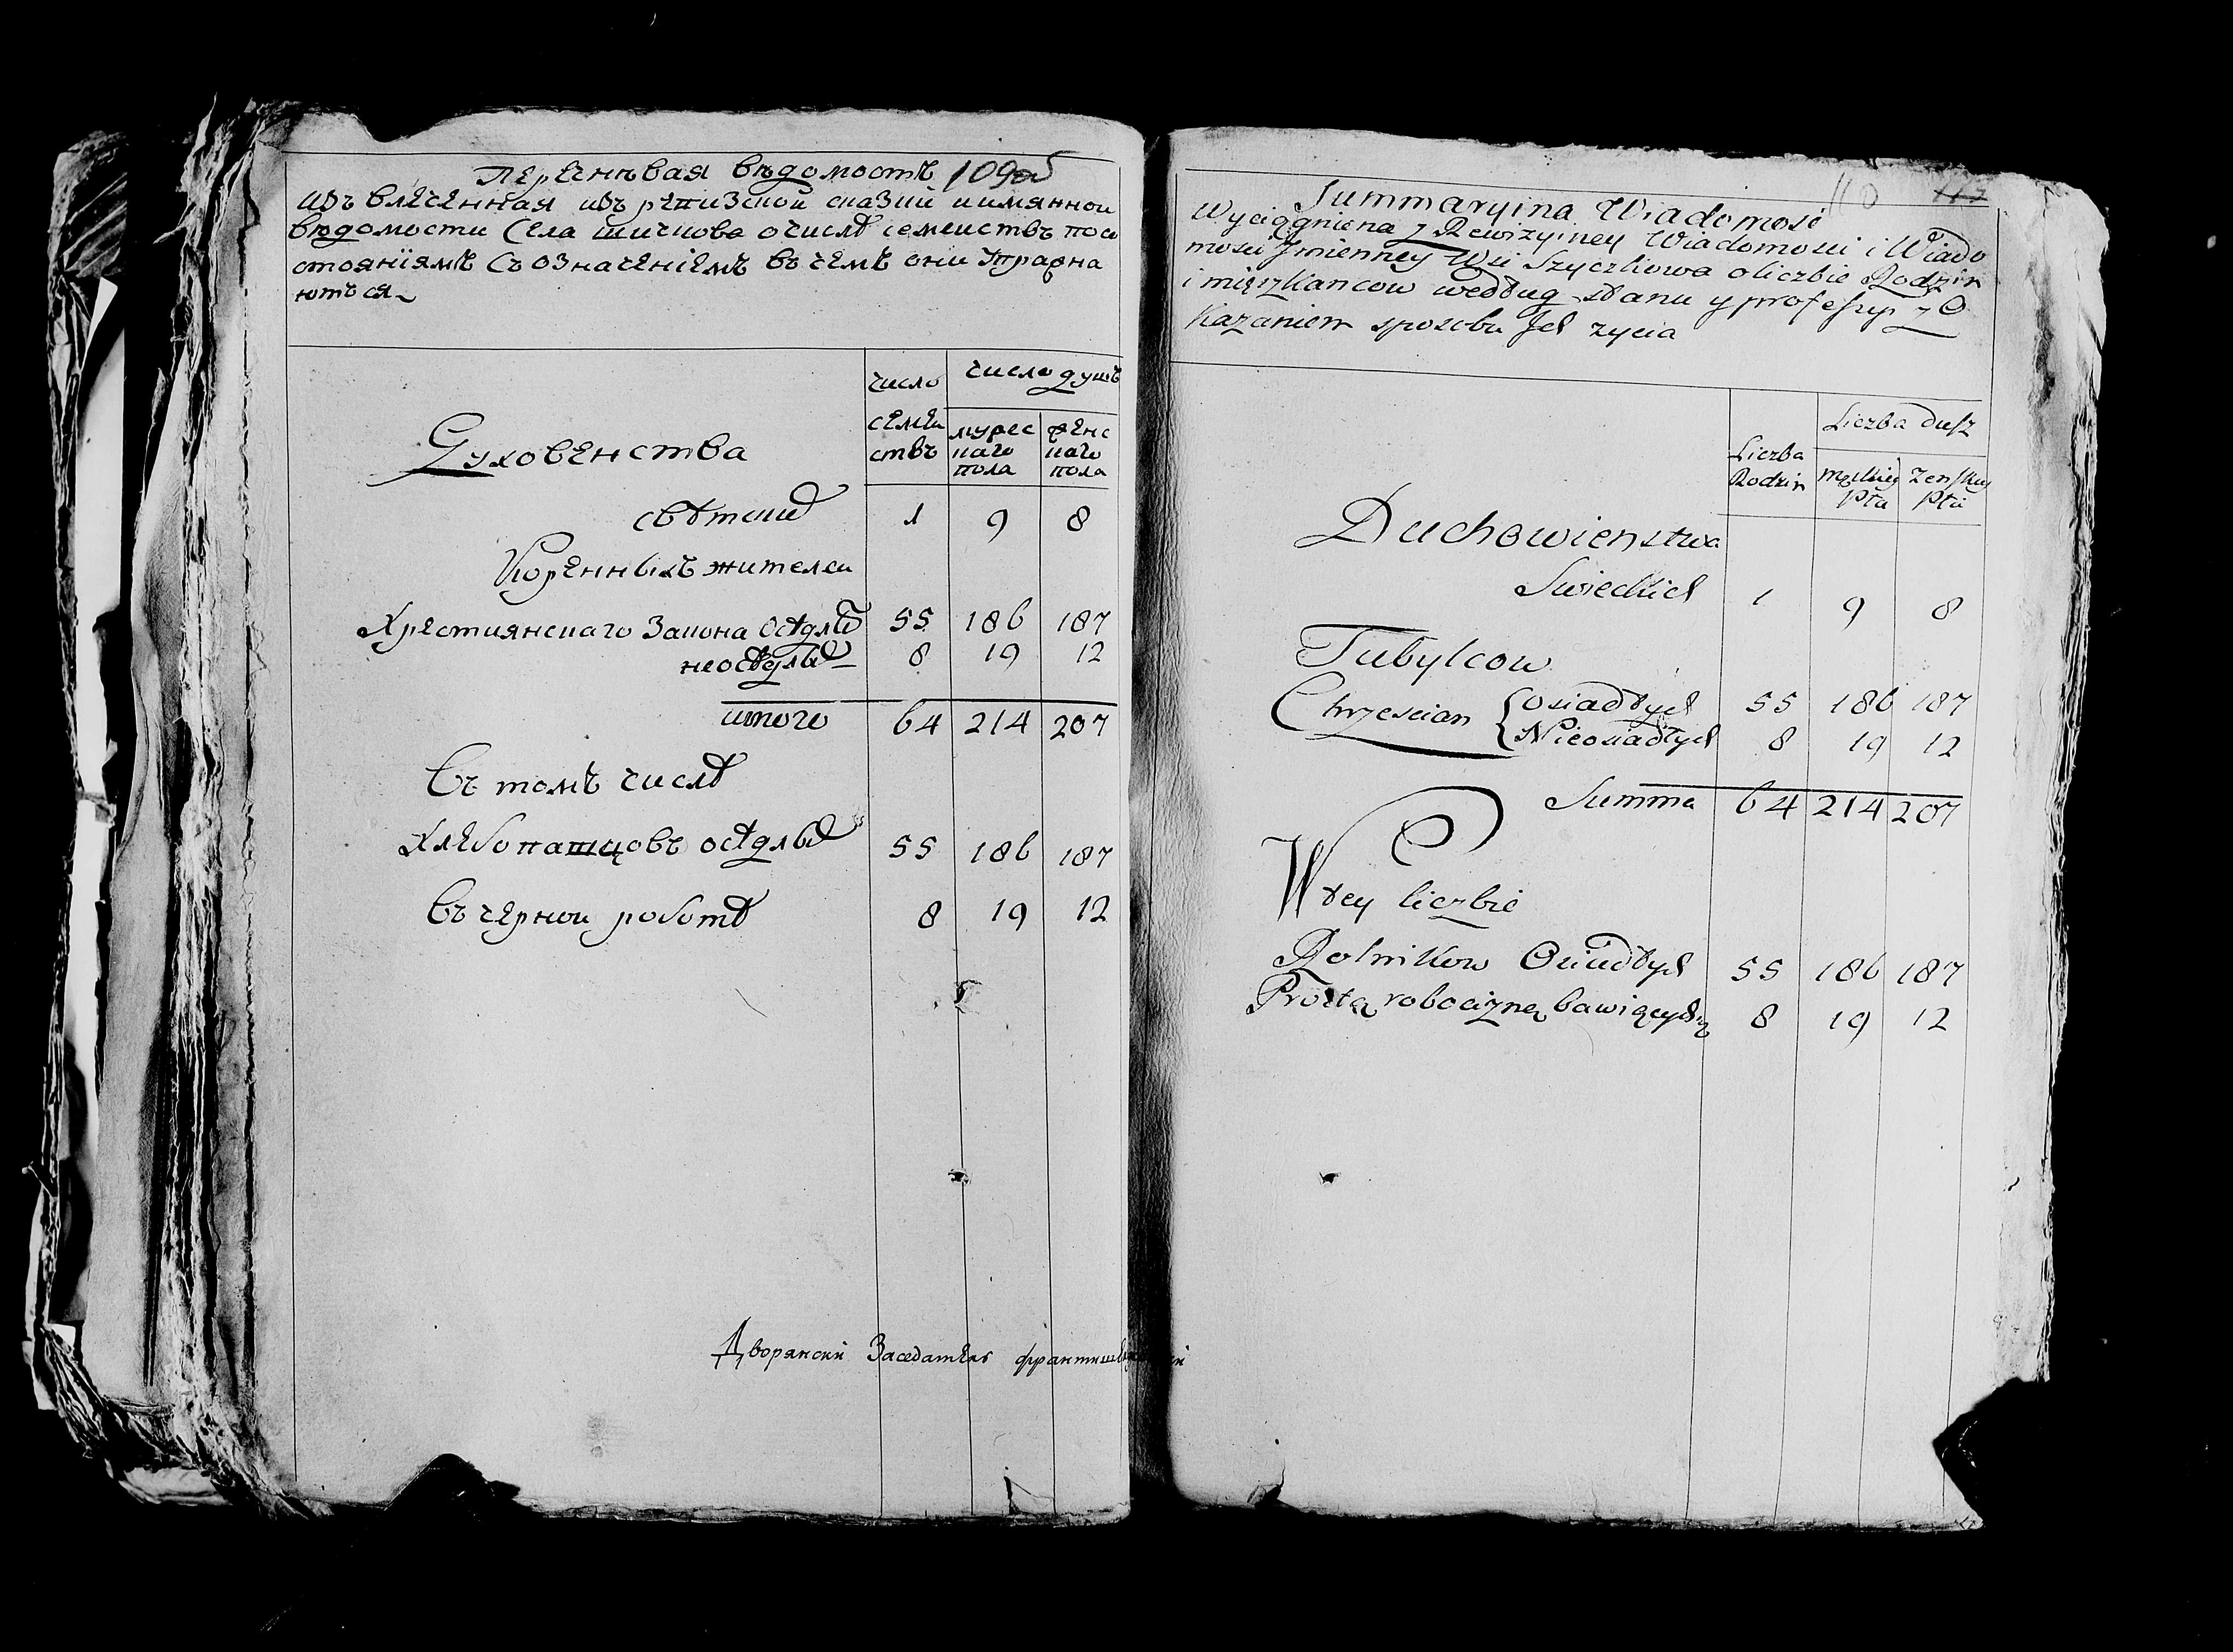 Перечневая вѣдомость 109об
извлеченная изъ ревизской сказки иимянной
вѣдомости Села шичкова очислѣ семействъ посо
стояніямъ Съ означеніемъ въ чемъ они Упражня
ются
число
семей
ствъ
число душъ
мужес
каго
пола
женс
каго
пола
Духовенства
свѣтских 1 9 8
Коренныхъ жителей
Християнскаго Закона Осѣдлых 55 186 187
неосѣдлых 8 19 12
итого 64 214 207
Въ томъ числѣ
Хлебопашцовъ осѣдлых 55 186 187
Въ черной роботѣ 8 19 12
Дворянски Заседатель
110 117
Summaryina Wiadomość
Wyciągniena z Rewizyiney Wiadomosci i Wiado
mosci Jmienney Wsi Szyczkowa o liczbie Rodzin
i mięszkancow według stanu y professyi z O
kazaniem sposobu Ich zycia
Liczba
Rodzin
Liczba dusz
Męskiey
Płci
Zenskiey
Płci
Duchowienstwa
Swieckich 1 9 8
Tubylcow
Chrzescian { osiadłych 55 186 187
Nieosiadłych 8 19 12
Summa 64 214 207
W tey liczbie
Rolnikow Osiadłych 55 186 187
Prostą robocizną bawiących się 8 19 12